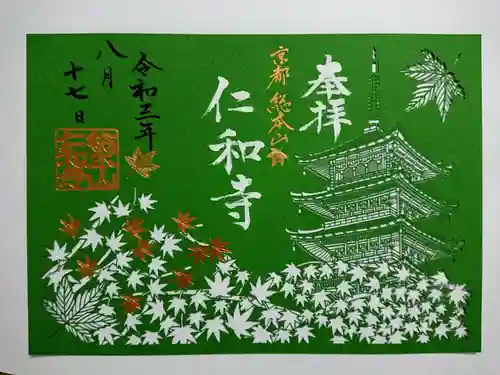 奉拝
京都 総本山
仁和寺
令和三年
八月
十七日